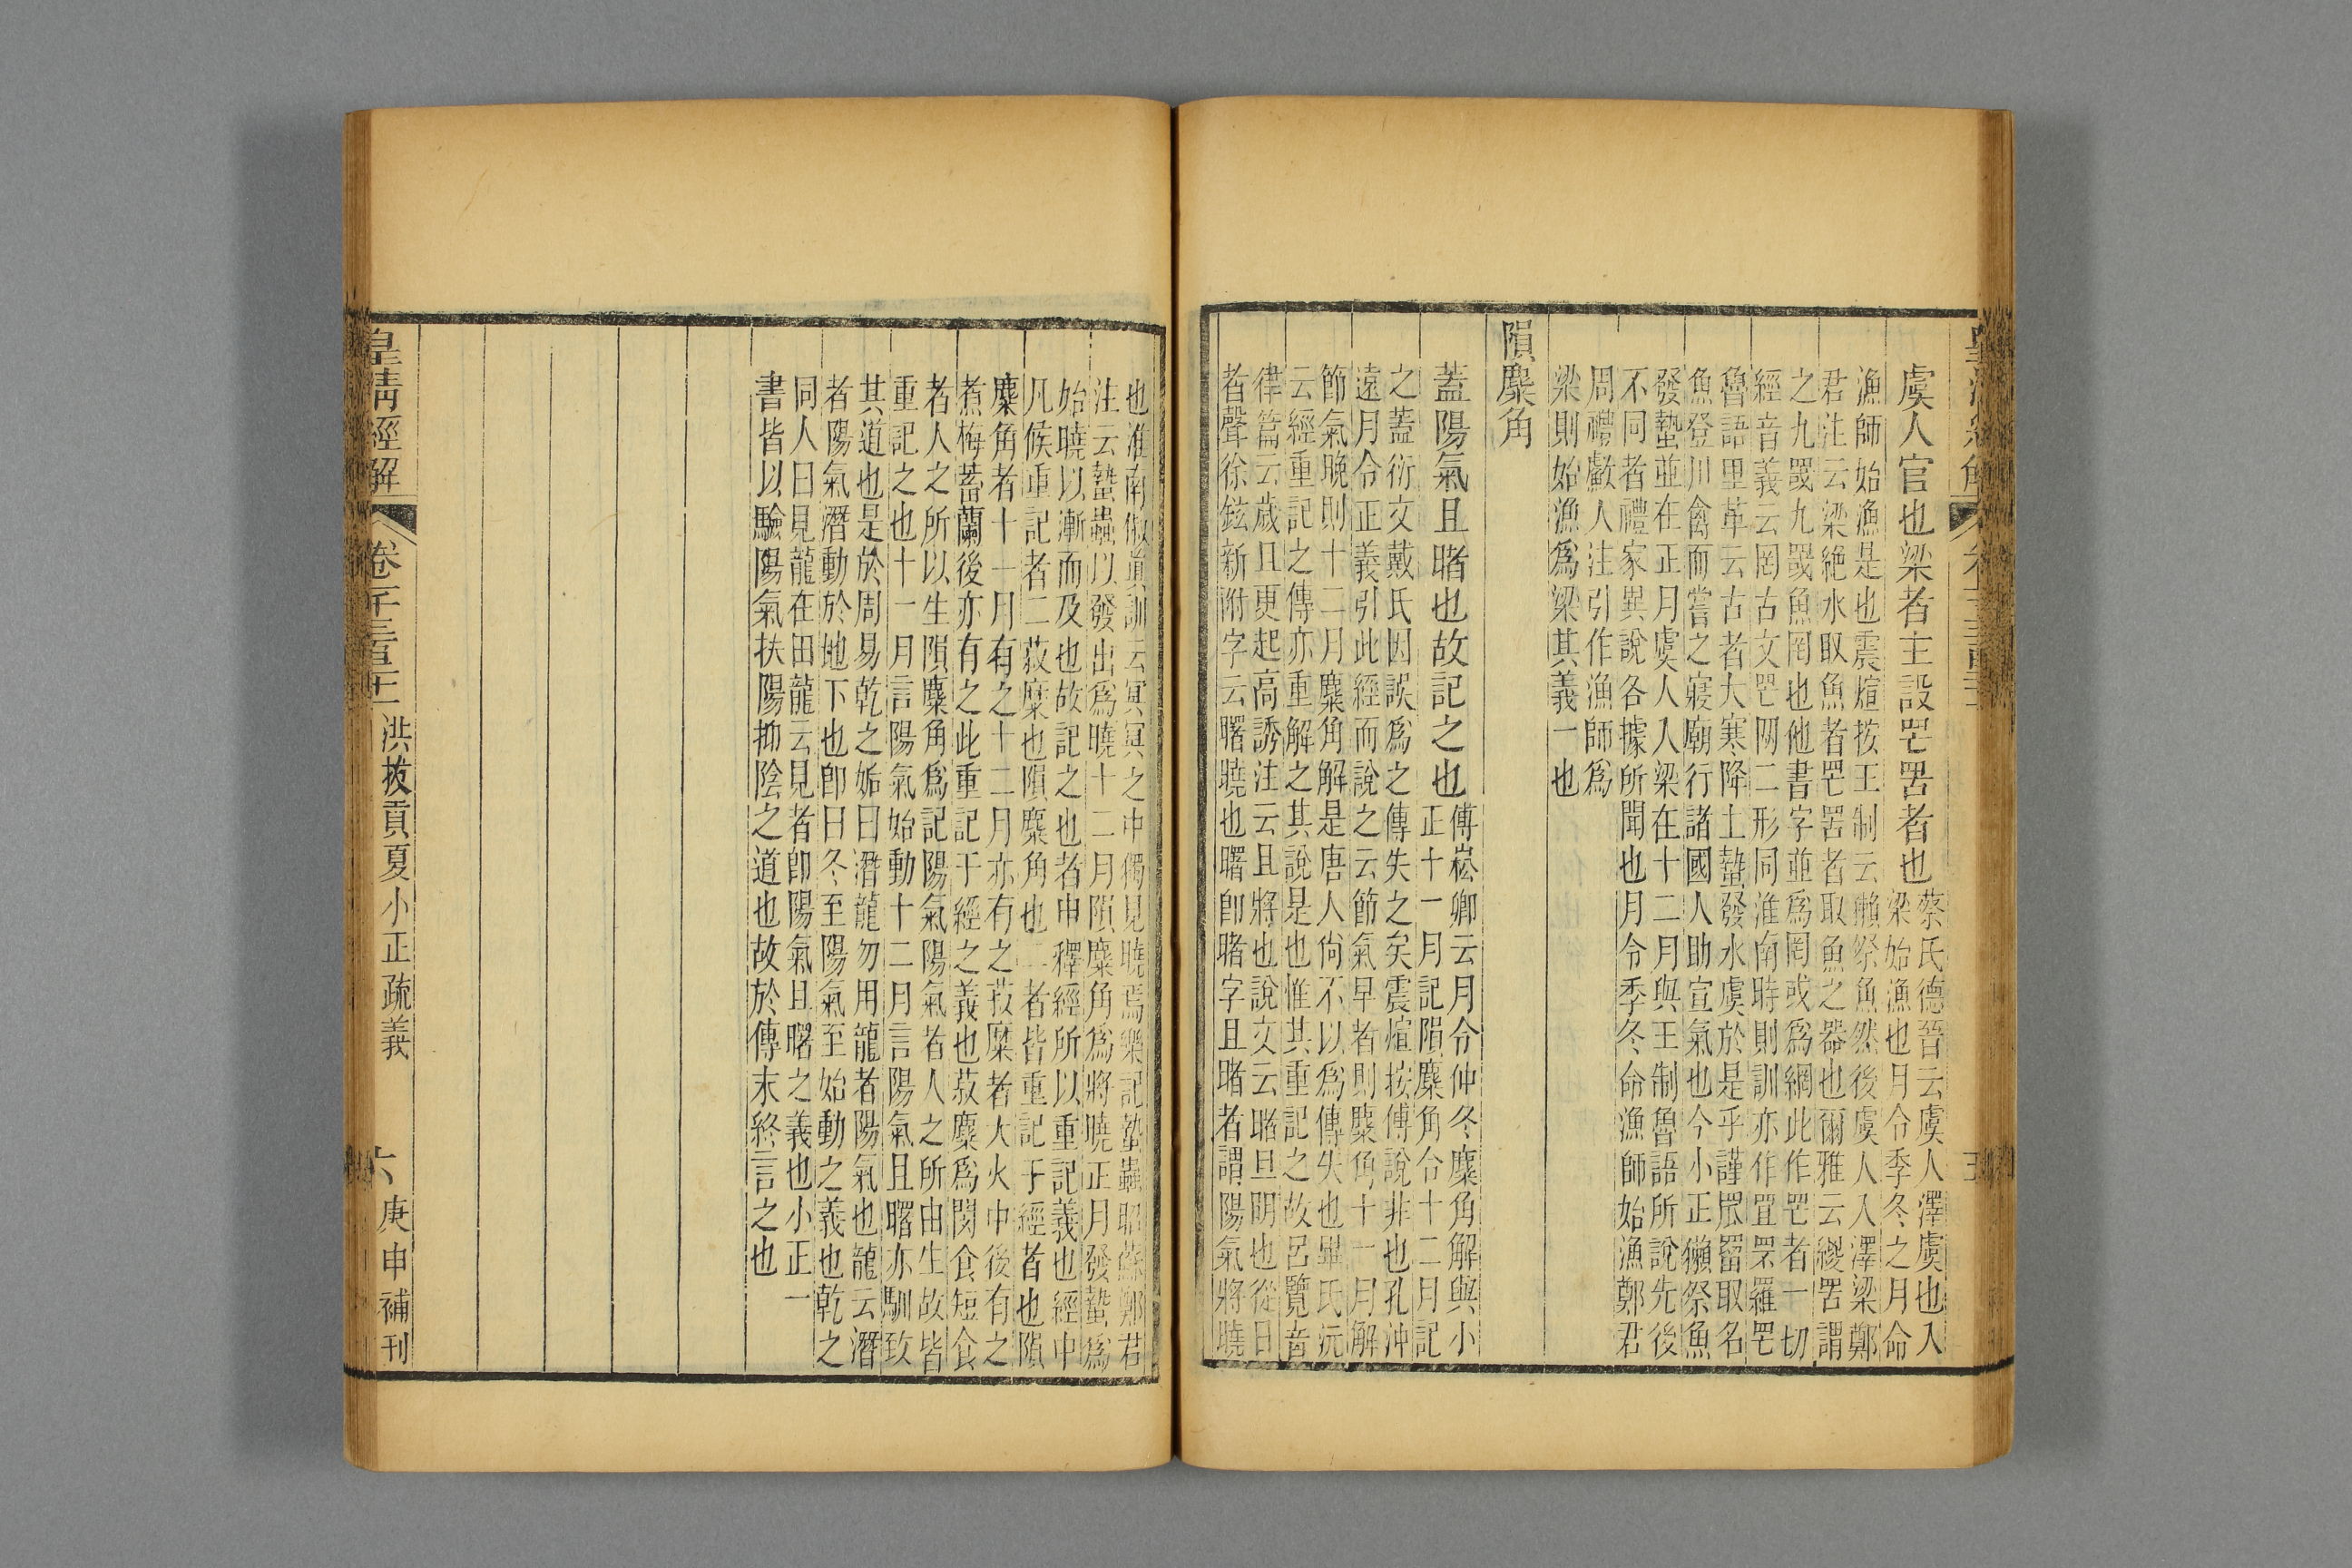 虞人官也梁者主設罟罟者也
蔡氏德晉云虞人澤虞也入
梁始漁也月令季冬之月命
漁師始漁是也震煊按王制云獺祭魚然後虞人入澤梁鄭
君注云梁絕水取魚者罟罟者取魚之器也爾雅云緵罟謂
之九罭九罭魚罔也他書字並爲罔或爲網此作罟者一切
經音義云罔古文罟网二形同淮南時則訓亦作罝罘羅罟
魯語里革云古者大寒降土蟄發水虞於是乎謹罛罶取名
魚登川禽而嘗之寢廟行諸國人助宣氣也今小正獺祭魚
發蟄並在正月虞人入梁在十二月與王制魯語所說先後
不同者禮家異說各據所聞也月令季冬命漁師始漁鄭君
周禮䱷人注引作漁師爲
梁則始漁爲梁其義一也
隕麋角
蓋陽氣且睹也故記之也
傅崧卿云月令仲冬麋角解與小
正十一月記隕麋角合十二月記
之蓋衍文戴氏因誤爲之傳失之矣震煊按傅說非也孔沖
遠月令正義引此經而說之云節氣早者則麋角十一月解
節氣晚則十二月麋角解是唐人尙不以爲傳失也畢氏沅
云經重記之傳亦重解之其說是也惟其重記之故呂覽音
律篇云歲且更起高誘注云且將也說文云睹旦明也從日
者聲徐鉉新附字云曙曉也曙卽睹字且睹者謂陽氣將曉
也淮南俶眞訓云冥冥之中獨見曉焉樂記蟄蟲昭蘇鄭君
注云蟄蟲以發出爲曉十二月隕麋角爲將曉正月發蟄爲
始曉以漸而及也故記之也者申釋經所以重記義也經中
凡候重記者二菽糜也隕麋角也二者皆重記于經者也隕
麋角者十一月有之十二月亦有之菽糜者大火中後有之
煮梅蓄蘭後亦有之此重記于經之義也菽糜爲閔食短食
者人之所以生隕麋角爲記陽氣陽氣者人之所由生故皆
重記之也十一月言陽氣始動十二月言陽氣且曙亦馴致
其道也是於周易乾之姤曰潛龍勿用龍者陽氣也龍云潛
者陽氣潛動於地下也卽日冬至陽氣至始動之義也乾之
同人曰見龍在田龍云見者卽陽氣且曙之義也小正一
書皆以驗陽氣扶陽抑陰之道也故於傳末終言之也
皇淸經解
卷一千三百二十一
洪拔貢夏小正疏義
六
庚申補刊